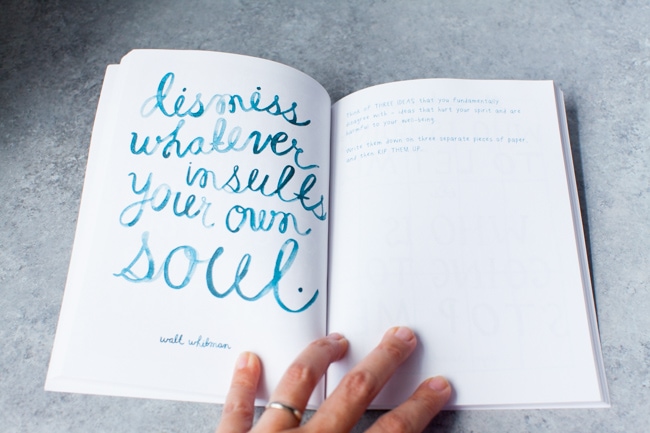 dismiss
whatever
insults
your own
soul.
walt whitman
Think of THREE IDEAS that you fundamentally
disagree with - ideas that hurt your spirit and are
harmful to your well-being.
Write them down on three separate pieces of paper,
and then RIP THEM UP.
WHO IS
GOING TO
STOP ME